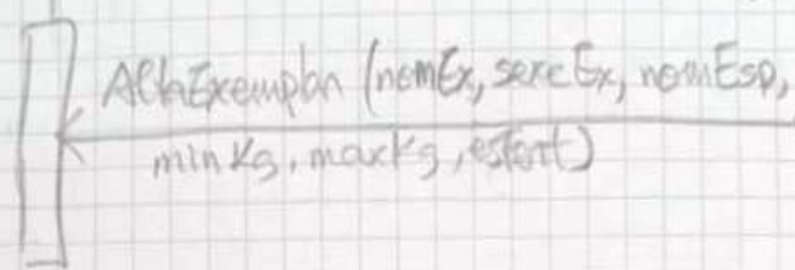 AltaExemplar (nomEx, sexeEx, nomEsp,
minKg, maxKg, esTent)